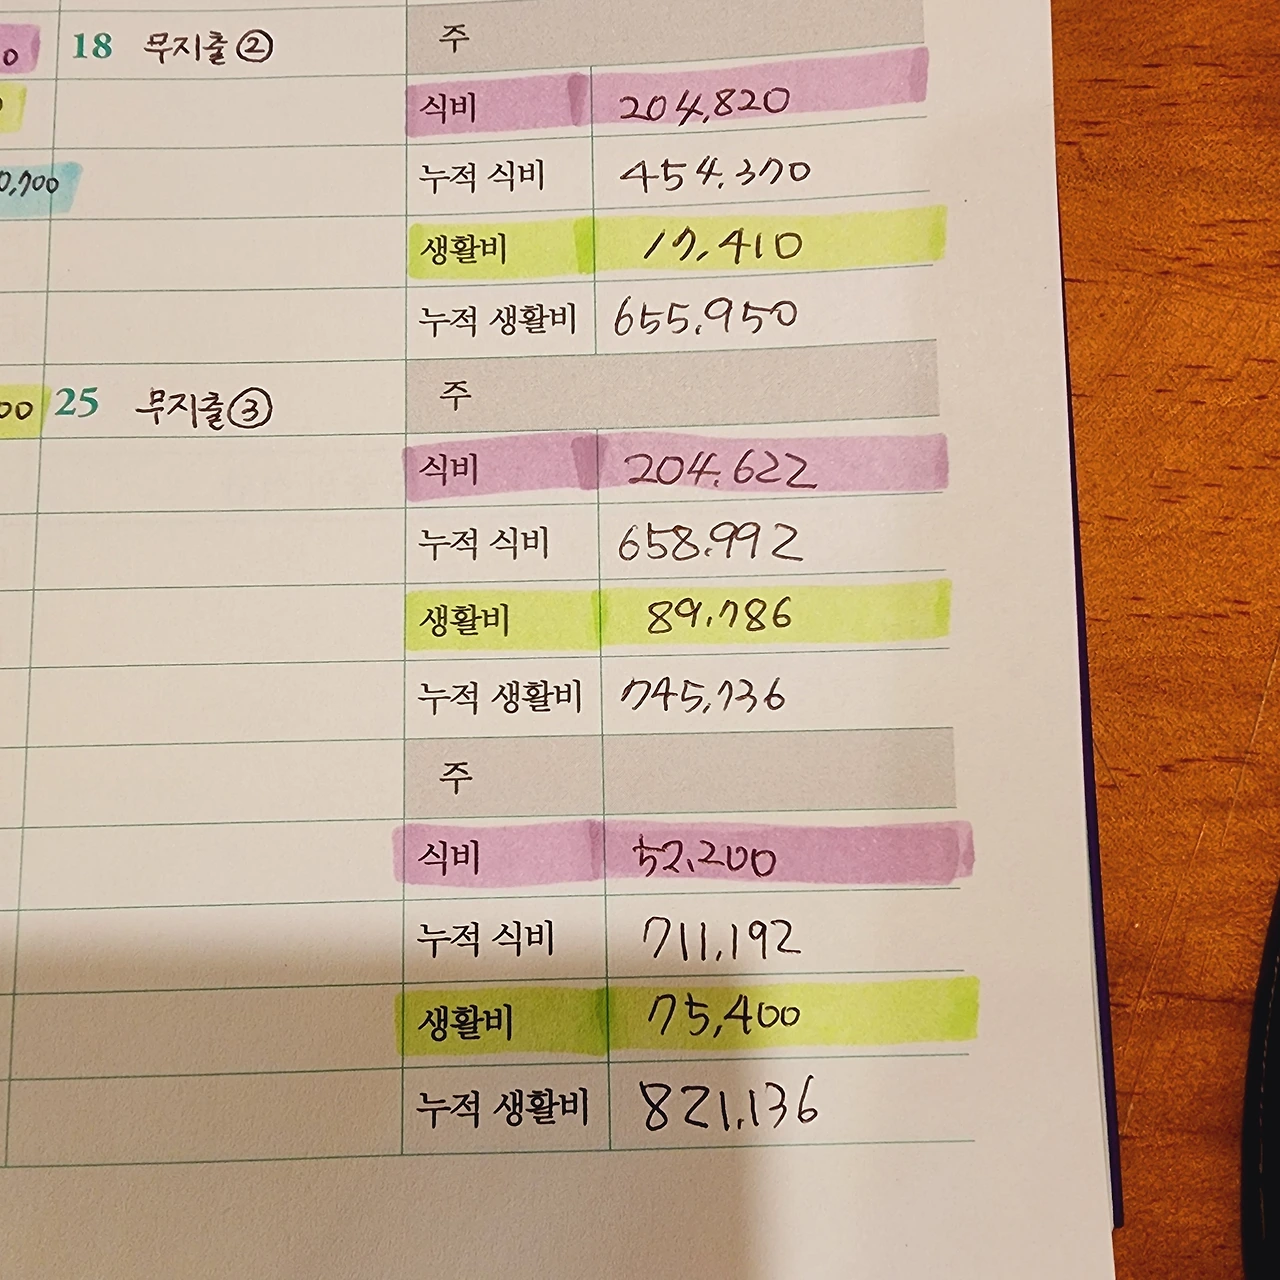 0 18 무지출② 주
식비 204,820
0,700 누적 식비 454,370
생활비 17,410
누적 생활비 655,950
00 25 무지출③ 주
식비 204,622
누적 식비 658,992
생활비 89,786
누적 생활비 745,736
주
식비 52,200
누적 식비 711,192
생활비 75,400
누적 생활비 821,136